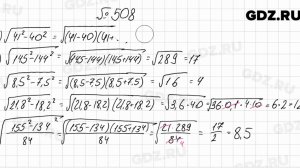 GDZ.RU
№ 508
√(41²-40²) = √((41-40)(41+...
√(145²-144²) = √((145-144)(145+144)) = √289 = 17
√(8,5²-7,5²) = √((8,5-7,5)(8,5+7,5)) = √16 = 4
√(21,8²-18,2²) = √((21,8-18,2)(21,8+18,2)) = √(3,6·40) = √(36·0,1·4·10) = 6·2=12
√((155²-134²)/84) = √((155-134)(155+134)/84) = √(21·289/84) = 17/2 = 8,5
GDZ.RU